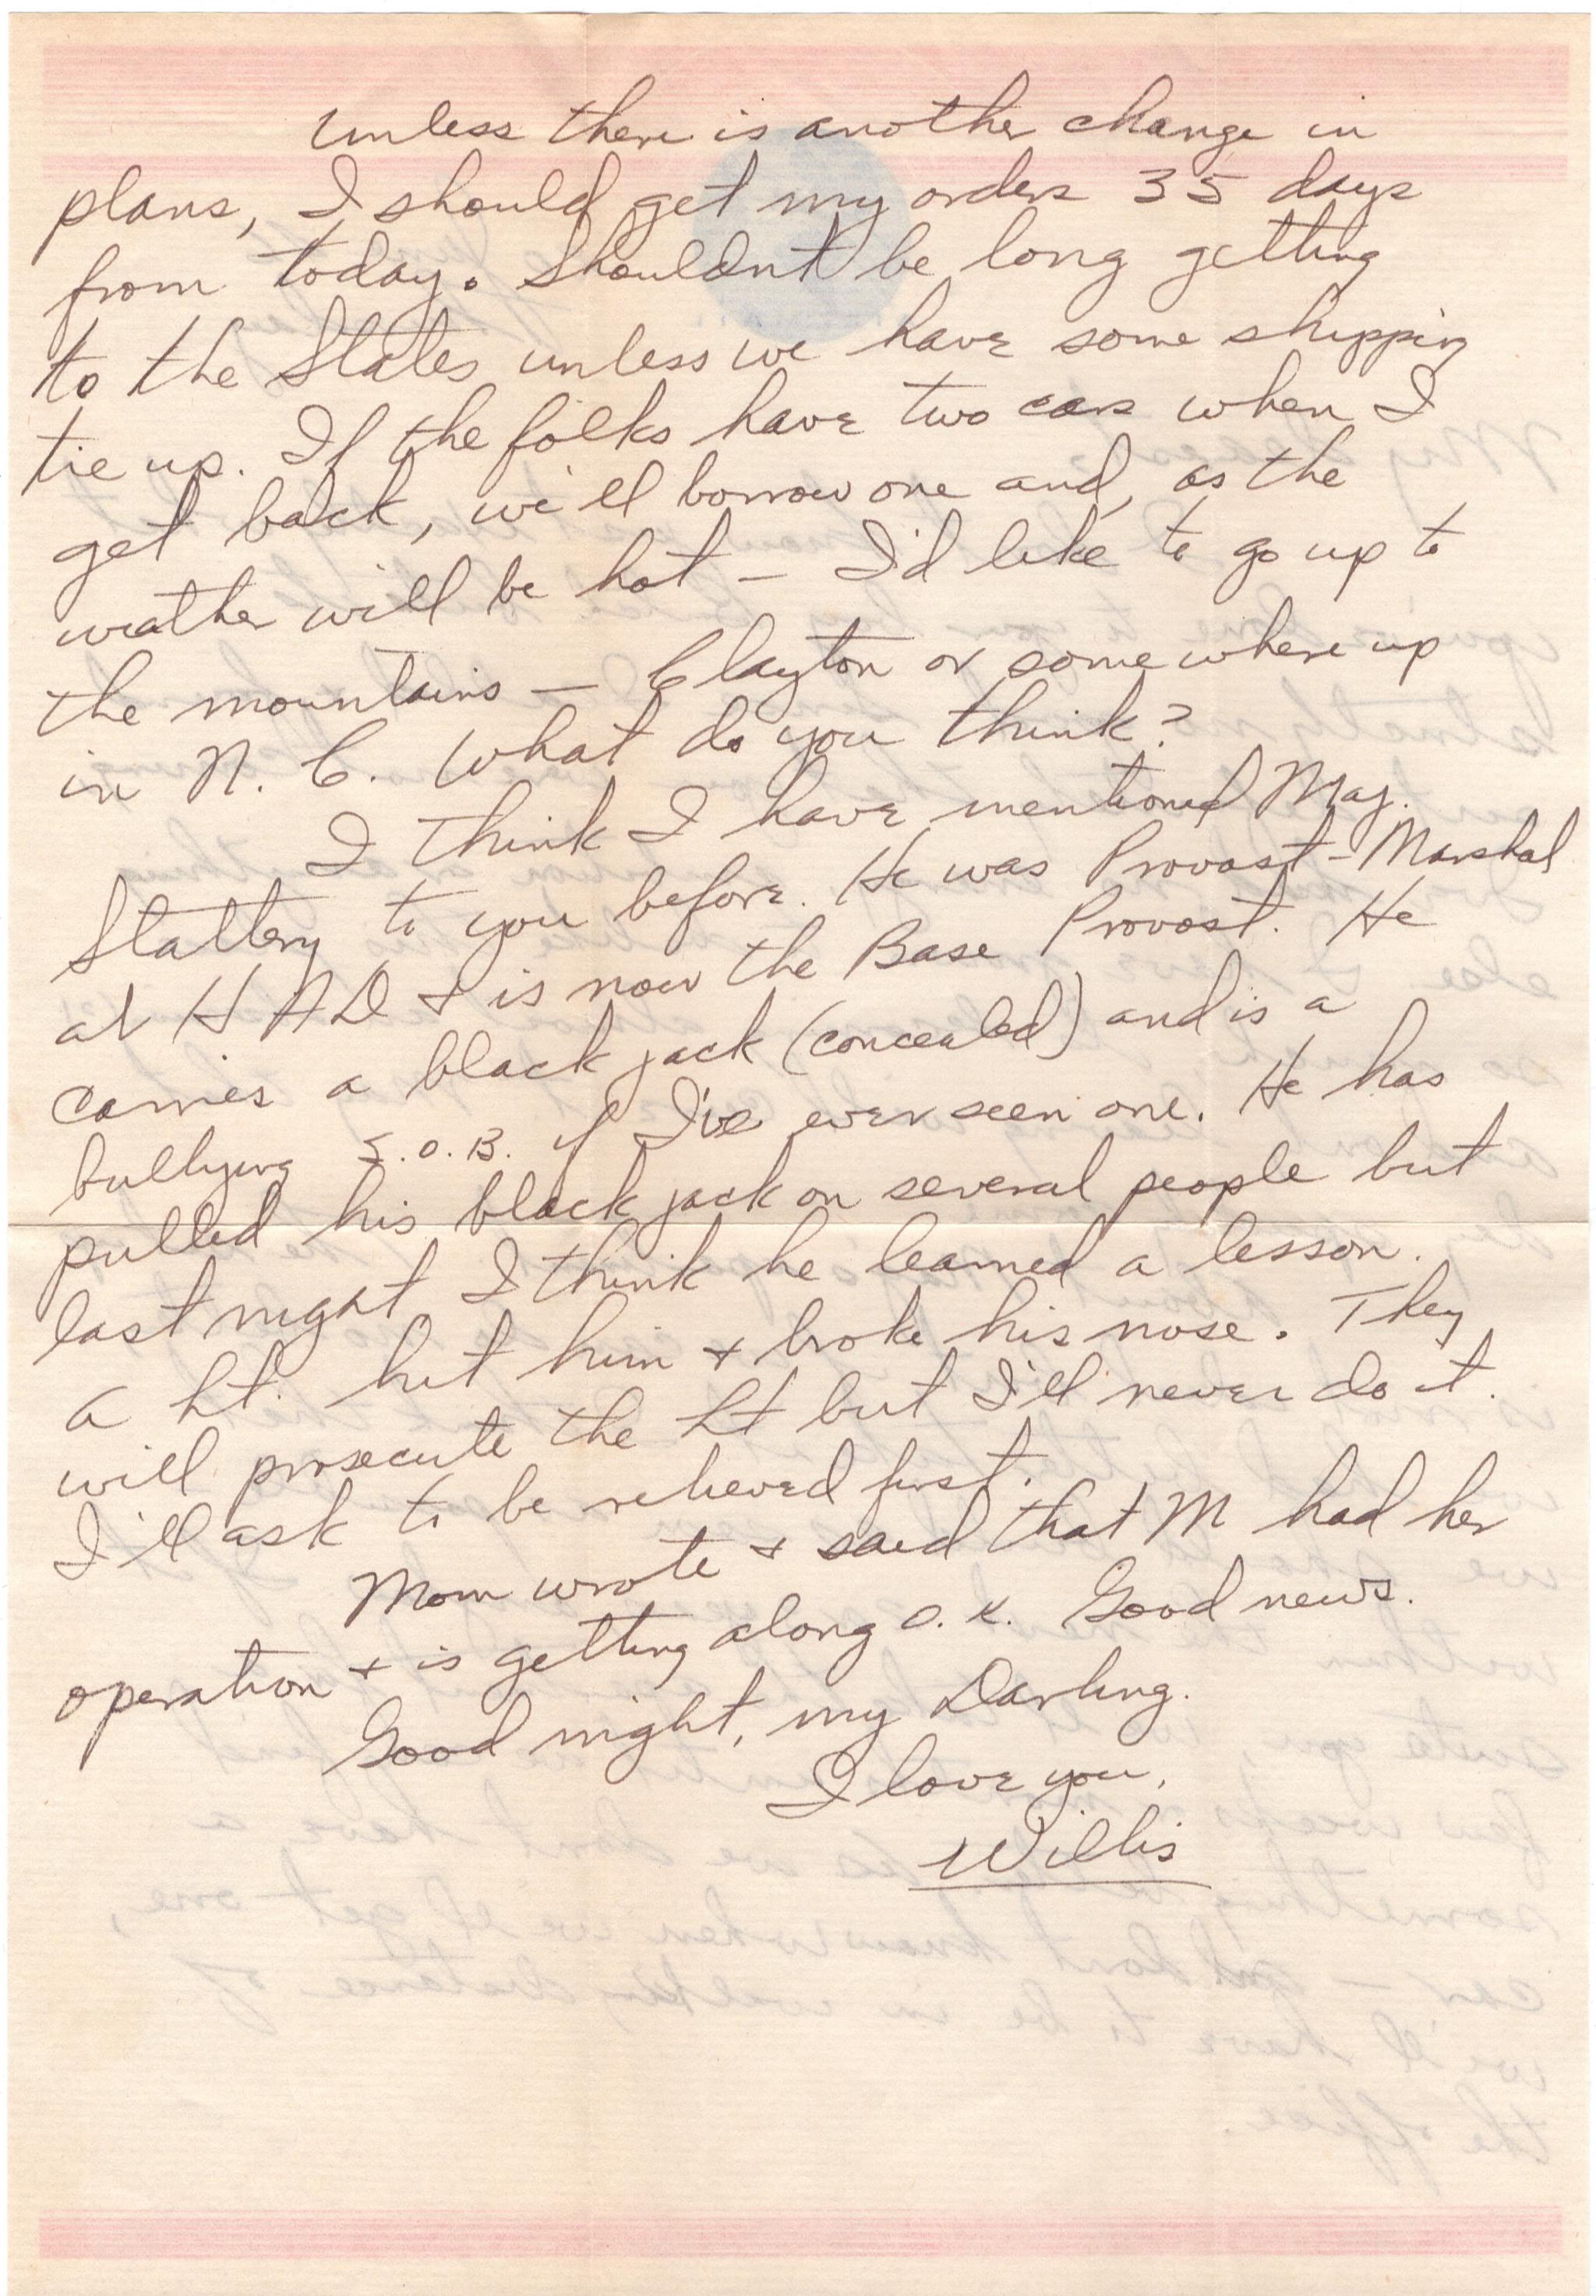 Unless there is another change in
plans, I should get my orders 35 days
from today. Shouldn't be long getting
to the States unless we have some shipping
tie up. If the folks have two cars when I
get back, we'll borrow one and, as the
weather will be hot — I'd like to go up to
the mountains — Clayton or somewhere up
in N. C. What do you think?
I think I have mentioned Maj.
Slattery to you before. He was Provost-Marshal
at HAD & is now the Base Provost. He
carries a black jack (concealed) and is a
bullying S.O.B. if I've ever seen one. He has
pulled his black jack on several people but
last night I think he learned a lesson.
a Lt. hit him & broke his nose. They
will prosecute the Lt but I'll never do it.
I'll ask to be relieved first.
Mom wrote & said that M had her
operation & is getting along O.K. Good news.
Good night, my Darling.
I love you,
Willis